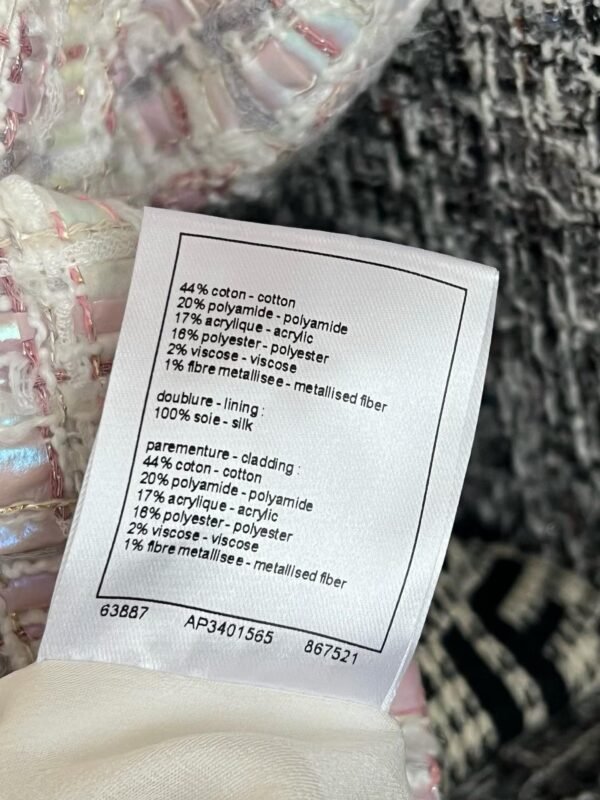 44% coton - cotton
20% polyamide - polyamide
17% acrylique - acrylic
16% polyester - polyester
2% viscose - viscose
1% fibre metallisee - metallised fiber
doublure - lining :
100% soie - silk
parementure - cladding :
44% coton - cotton
20% polyamide - polyamide
17% acrylique - acrylic
16% polyester - polyester
2% viscose - viscose
1% fibre metallisee - metallised fiber
63887 AP3401565 867521